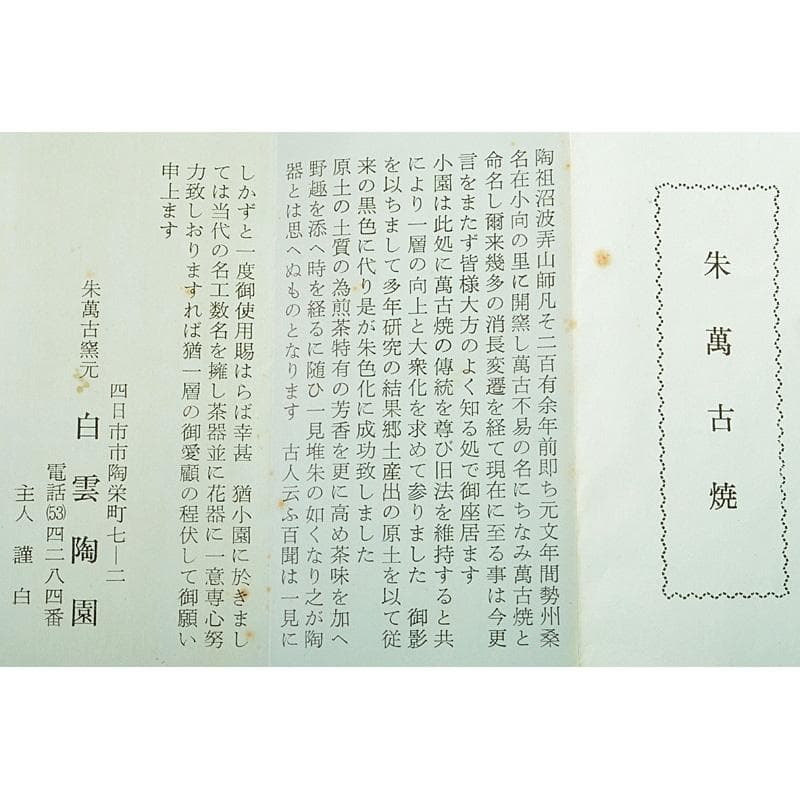 朱萬古焼
陶祖沼波弄山師凡そ二百有余年前即ち元文年間勢州桑
名在小向の里に開窯し萬古不易の名にちなみ萬古焼と
命名し爾来幾多の消長変遷を経て現在に至る事は今更
言をまたず皆様大方のよく知る処で御座居ます
小園は此処に萬古焼の傳統を尊び旧法を維持すると共
により一層の向上と大衆化を求めて参りました　御影
を以ちまして多年研究の結果郷土産出の原土を以て従
来の黒色に代り是が朱色化に成功致しました
原土の土質の為煎茶特有の芳香を更に高め茶味を加へ
野趣を添へ時を経るに随ひ一見堆朱の如くなり之が陶
器とは思へぬものとなります　古人云ふ百聞は一見に
しかずと一度御使用賜はらば幸甚　猶小園に於きまし
ては当代の名工数名を擁し茶器並に花器に一意専心努
力致しおりますれば猶一層の御愛顧の程伏して御願い
申上ます
朱萬古窯元
四日市市陶栄町七—二
白雲陶園
電話(53)四二八四番
主人　謹白